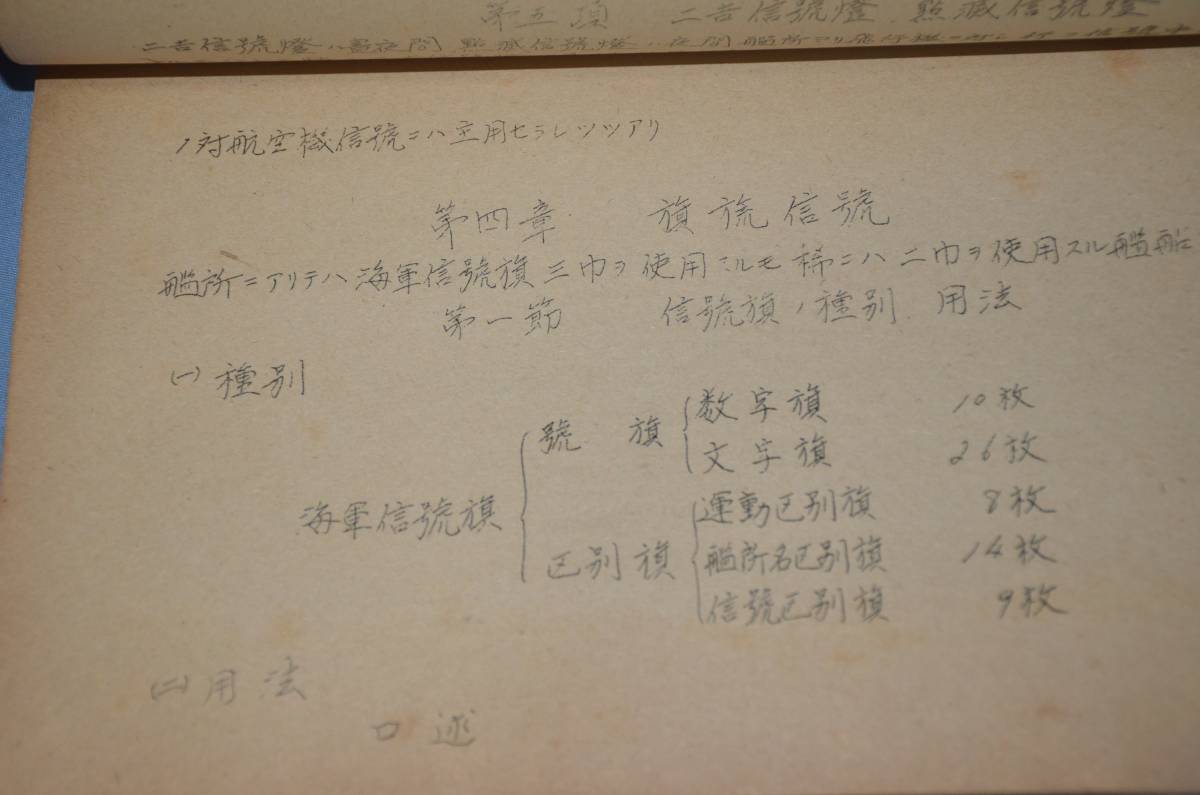 第五項　二吉信號燈、點滅信號燈
二吉信號燈ハ晝夜間、點滅信號燈ハ夜間艦所ヨリ飛行機
ノ対航空機信號ニハ主用セラレツツアリ
第四章　旗旒信號
艦所ニアリテハ海軍信號旗三巾ヲ使用スルモ稀ニハ二巾ヲ使用スル艦船
第一節　信號旗ノ種別、用法
(一) 種別
海軍信號旗
號旗
数字旗　10枚
文字旗　26枚
区別旗
運動区別旗　8枚
艦所名区別旗　14枚
信號区別旗　9枚
(二) 用法
口述